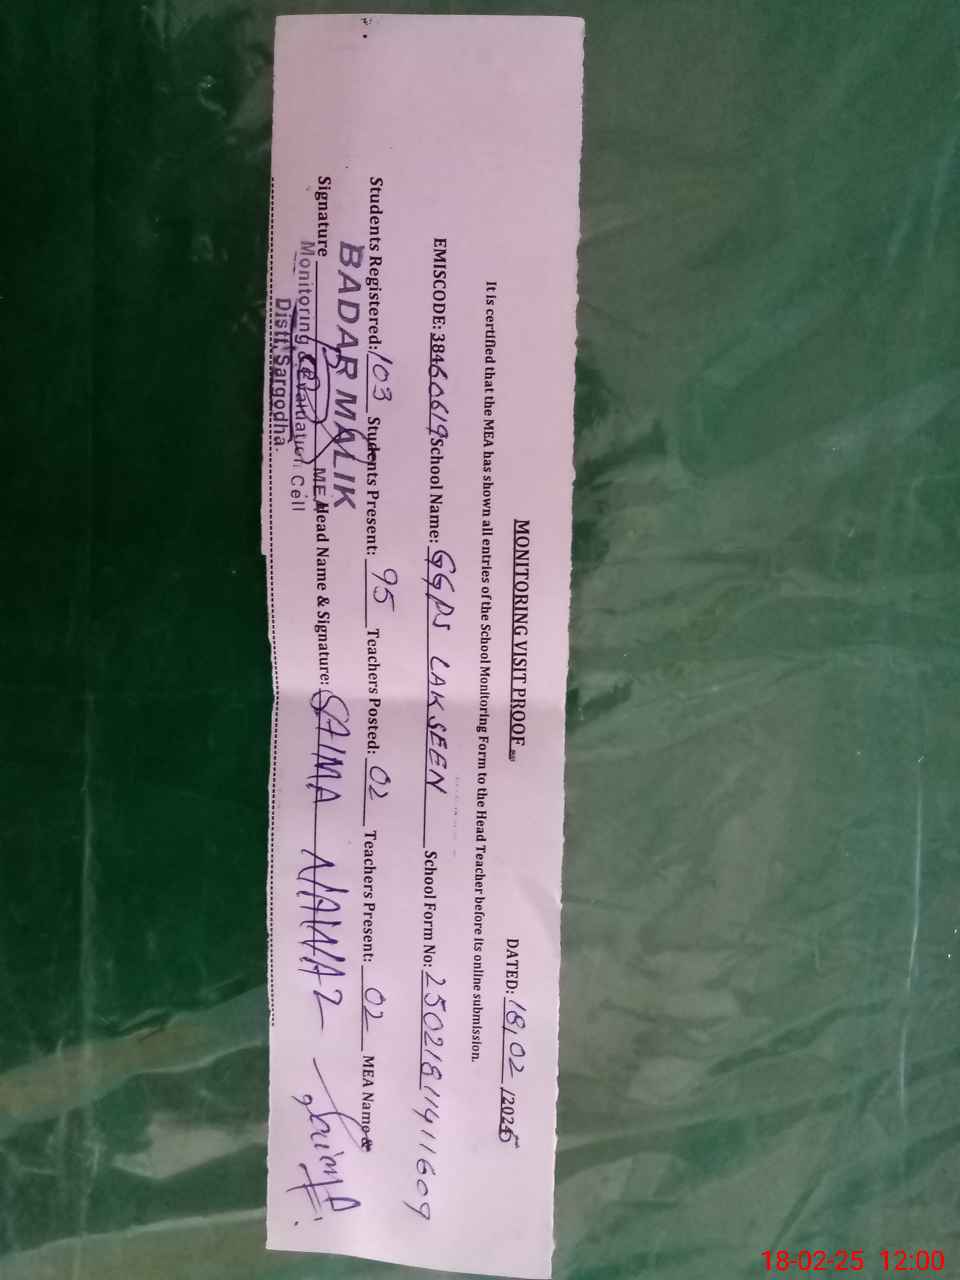 MONITORING VISIT PROOF
DATED: 18/02/2025
It is certified that the MEA has shown all entries of the School Monitoring Form to the Head Teacher before its online submission.
EMISCODE: 38460619 School Name: GGPS LAKSEEN School Form No: 25021811411609
Students Registered: 103 Students Present: 95 Teachers Posted: 02 Teachers Present: 02 MEA Name &
BADAR MALIK
Signature MEA Head Name & Signature: SAIMA NAWAZ
Monitoring & Evaluation Cell
Distt. Sargodha.
18-02-25 12:00